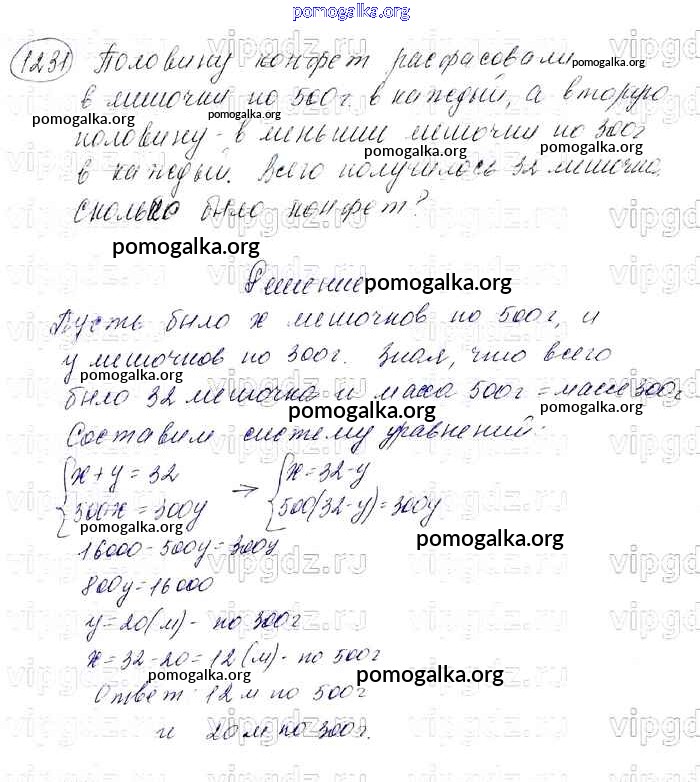 pomogalka.org
1231 Половину конфет расфасовали pomogalka.org
в мешочки по 500г в каждый, а вторую
pomogalka.org pomogalka.org
половину - в меньшии мешочки по 300г
pomogalka.org
в каждый. Всего получилось 32 мешочка.
pomogalka.org
сколько было конфет?
pomogalka.org
Решение pomogalka.org
Пусть было x мешочков по 500г, и
y мешочков по 300г. Зная, что всего
pomogalka.org
было 32 мешочка и масса 500г = массе 300г
pomogalka.org pomogalka.org
Составим систему уравнений:
x + y = 32 → x = 32 - y
500x = 300y 500(32 - y) = 300y
pomogalka.org pomogalka.org
16000 - 500y = 300y
800y = 16000
y = 20(м) - по 300г
x = 32 - 20 = 12(м) - по 500г
pomogalka.org
Ответ: 12 м по 500г
pomogalka.org
и 20 м по 300г.